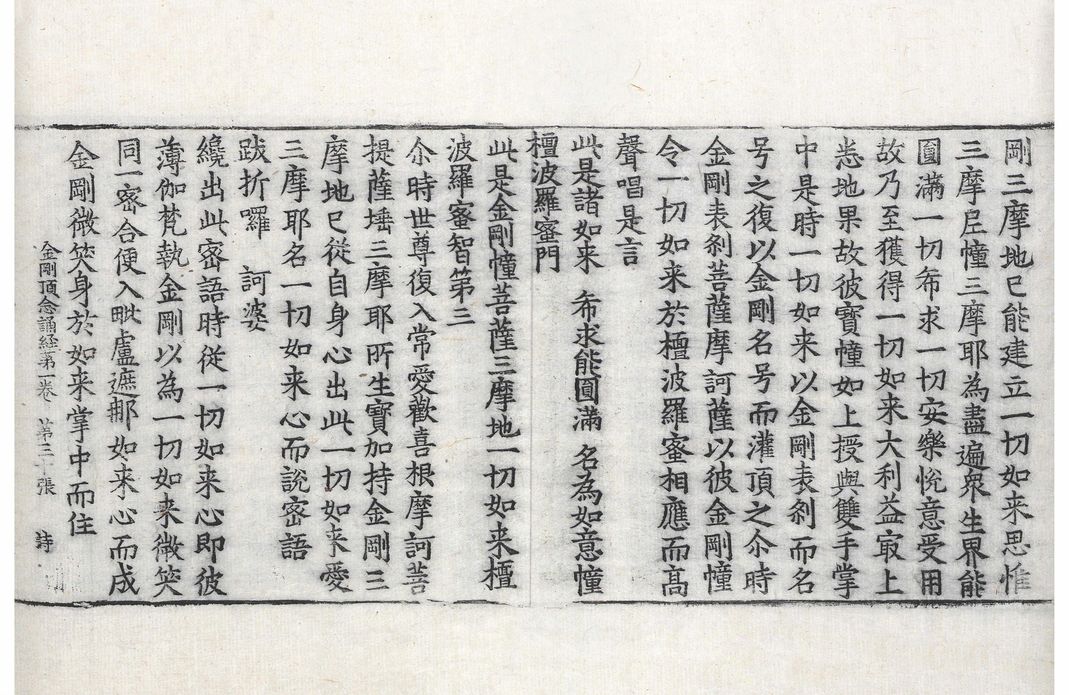 剛三摩地已能建立一切如来思惟
三摩𡰱幢三摩耶為盡遍衆生界能
圎滿一切希求一切安樂恱意受用
故乃至獲得一切如来大利益㝡上
悉地果故彼寶幢如上授與雙手掌
中是時一切如来以金剛表刹而名
号之復以金剛名号而灌頂之尒時
金剛表刹菩薩摩訶薩以彼金剛幢
令一切如来於檀波羅蜜相應而高
聲唱是言
此是諸如来　希求能圎滿　名為如意幢
檀波羅蜜門
此是金剛幢菩薩三摩地一切如来檀
波羅蜜智第三
尒時世尊復入常愛歡喜根摩訶菩
提薩埵三摩耶所生寶加持金剛三
摩地已從自身心出此一切如来愛
三摩耶名一切如来心而說密語
跋折囉　訶婆
纔出此密語時從一切如来心即彼
薄伽梵執金剛以為一切如来微笑
同一密合便入毗盧遮那如来心而成
金剛微笑身於如来掌中而住
金剛頂念誦経第一卷　第三十張　詩